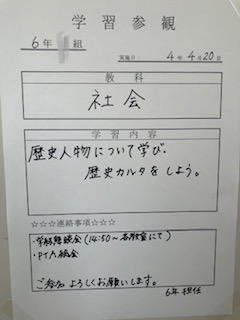 学習参観
6年 組
実施日: 4年4月20日
教科
社会
学習内容
歴史人物について学び、
歴史カルタをしよう。
☆☆☆連絡事項☆☆☆
・学級懇談会(14:50~各教室にて)
・PTA総会
ご参加よろしくお願いします。
6年担任